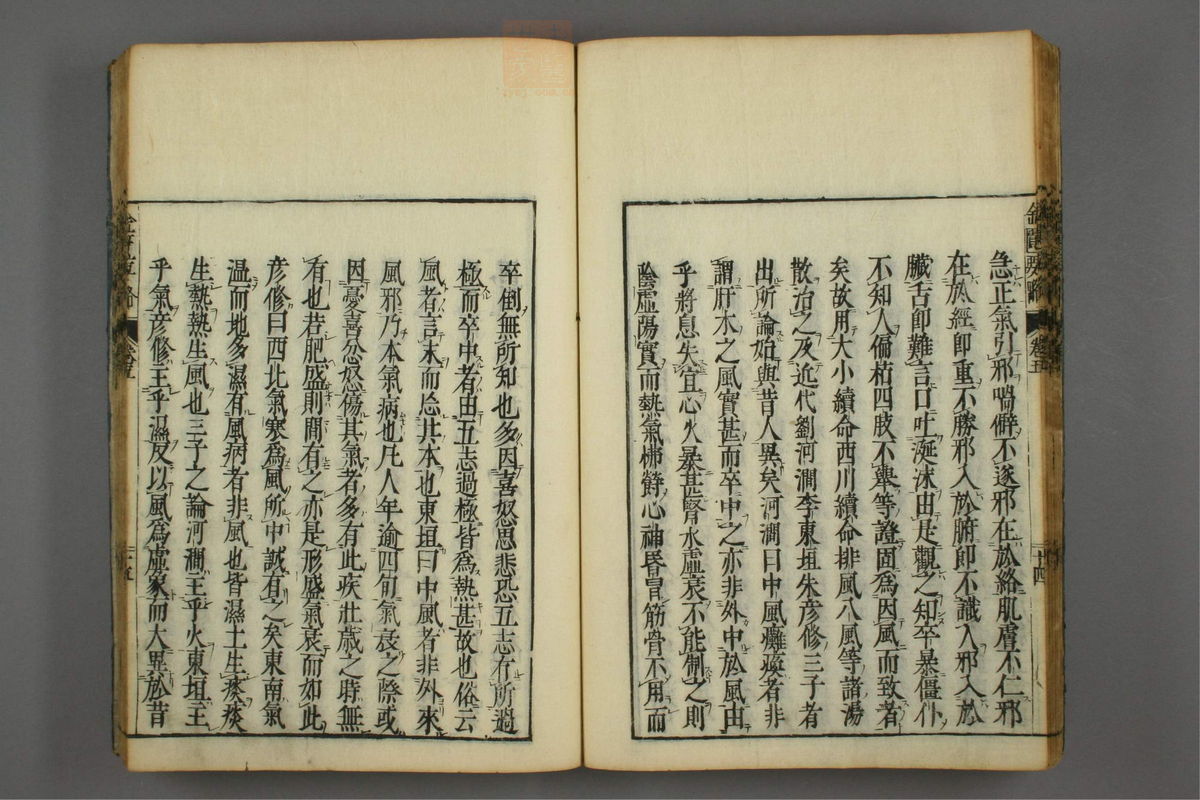 急正氣引邪喎僻不遂邪在於絡肌膚不仁邪
在於經即重不勝邪入於腑即不識人邪入於
臟舌即難言口吐涎沫由是觀之知卒暴僵仆
不知人偏枯四肢不舉等證固為因風而致者
矣故用大小續命西川續命排風八風等諸湯
散治之及近代劉河澗李東垣朱彥修三子者
出所論始與昔人異矣河澗曰中風癱瘓者非
謂肝木之風實甚而卒中之亦非外中於風由
乎將息失宜心火暴甚腎水虛衰不能制之則
陰虛陽實而熱氣怫鬱心神昏冒筋骨不用而
卒倒無所知也多因喜怒思悲恐五志有所過
極而卒中者由五志過極皆為熱甚故也俗云
風者言末而忘其本也東垣曰中風者非外來
風邪乃本氣病也凡人年逾四旬氣衰之際或
因憂喜忿怒傷其氣者多有此疾壯歲之時無
有也若肥盛則間有之亦是形盛氣衰而如此
彥修曰西北氣寒為風所中誠有之矣東南氣
温而地多濕有風病者非風也皆濕土生痰痰
生熱熱生風也三子之論河澗主乎火東垣主
乎氣彥修主乎濕反以風為虛象而大異於昔
卷五
十四